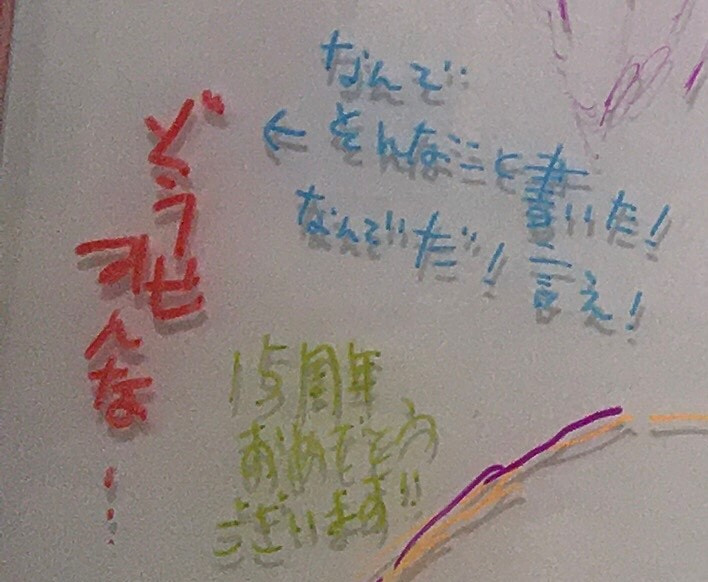 どうせ
みんな…
なんで
← そんなこと書いた!
なんでだ! 言え!
15周年
おめでとう
ございます!!